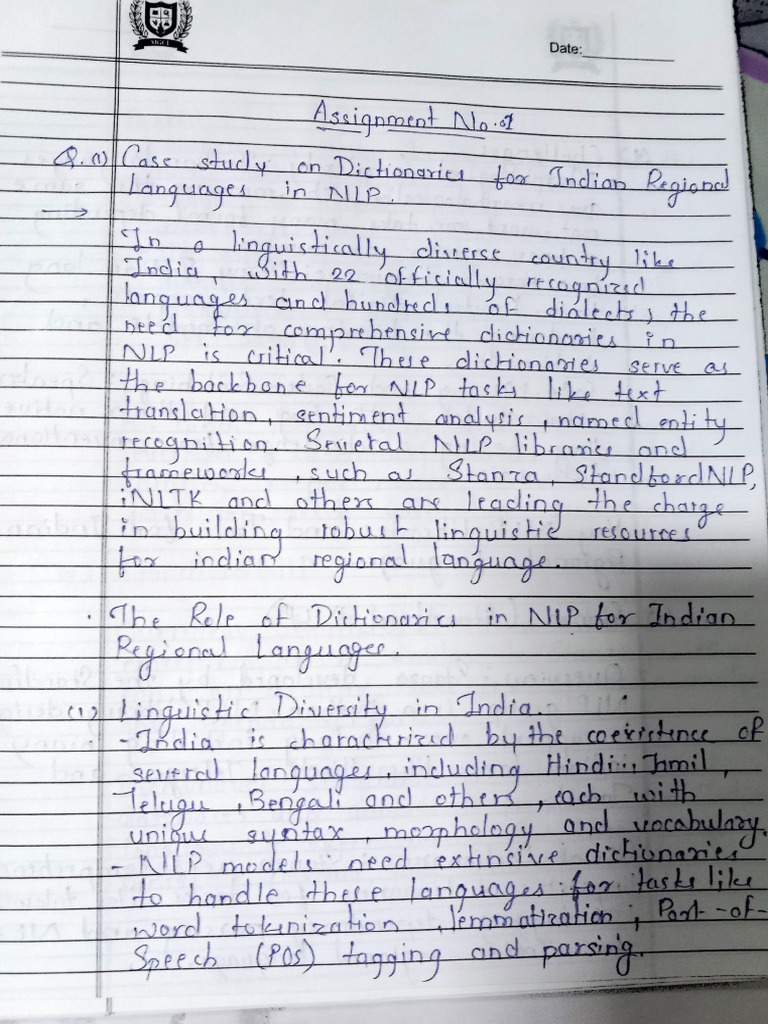 MGCT
Date:
Assignment No. 01
Q.(1) Case study on Dictionaries for Indian Regional
Languages in NLP.
→ In a linguistically diverse country like
India, with 22 officially recognized
languages and hundreds of dialects, the
need for comprehensive dictionaries in
NLP is critical. These dictionaries serve as
the backbone for NLP tasks like text
translation, sentiment analysis, named entity
recognition. Several NLP libraries and
frameworks, such as Stanza, StandfordNLP,
iNLTK and others are leading the charge
in building robust linguistic resources
for indian regional language.
• The Role of Dictionaries in NLP for Indian
Regional Languages.
(1) Linguistic Diversity in India.
- India is characterized by the coexistence of
several languages, including Hindi, Tamil,
Telugu, Bengali and others, each with
unique syntax, morphology and vocabulary.
- NLP models need extinsive dictionaries
to handle these languages for tasks like
word tokenization, lemmatization, Part-of-
Speech (POS) tagging and parsing.